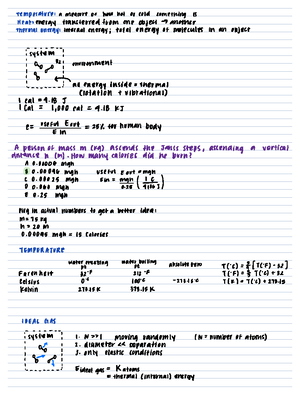 Temperature: a measure of how hot or cold something is
Heat: energy transferred from one object → another
Thermal energy: internal energy; total energy of molecules in an object
system
environment
all energy inside = thermal
(rotation + vibrational)
1 cal = 4.18 J
1 Cal = 1,000 cal = 4.18 KJ
e = useful E out / E in = 25% for human body
A person of mass m (kg) ascends the Janss steps, ascending a vertical
distance h (m). How many calories did he burn?
A 0.01000 mgh
B 0.00096 mgh useful E out = mgh
C 0.00025 mgh E in = mgh / 0.25
D 0.060 mgh
E 0.25 mgh
Plug in actual numbers to get a better idea:
m = 75 kg
h = 20 m
0.00095 mgh = 15 Calories
TEMPERATURE
water melting water boiling absolute zero
Farenheit 32°F 212°F
Celsius 0°C 100°C -273.15°C
Kelvin 273.15 K 373.15 K
T(°C) = 5/9 [T(°F) - 32]
T(°F) = 9/5 T(°C) + 32
T(K) = T(°C) + 273.15
IDEAL GAS
system
1. N >> 1 moving randomly (N = number of atoms)
2. diameter << separation
3. only elastic conditions
E ideal gas = K atoms
= thermal (internal) energy